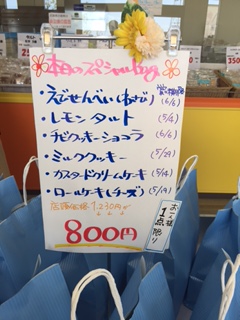 本日のスペシャルbag
賞味期限
・えびせんべい(ねぎ) (6/6)
・レモンタルト (5/4)
・チビクッキーショコラ (6/6)
・ミルククッキー (5/29)
・カスタードクリームケーキ (5/4)
・ロールケーキ(チーズ) (5/19)
店頭価格 1,230円が
800円
お一人様
1点限り